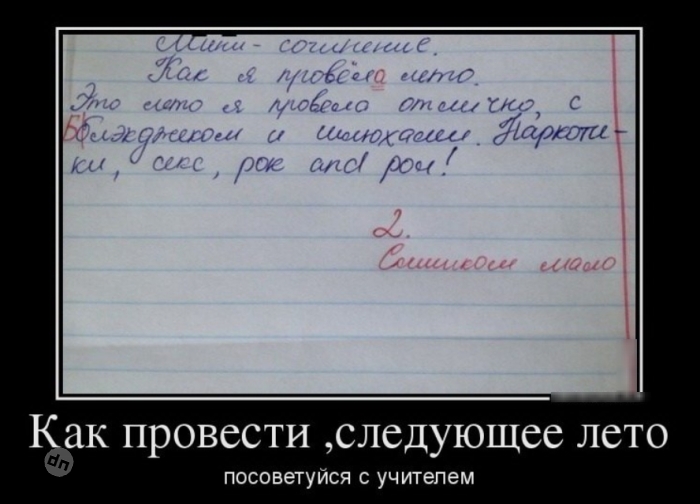 Мини - сочинение.
Как я провёла лето.
Это лето я провела отлично, с
блэкджеком и шлюхами. Наркоти-
ки, секс, рок and рол!
2.
Слишком мало
Как провести ,следующее лето
dn
посоветуйся с учителем